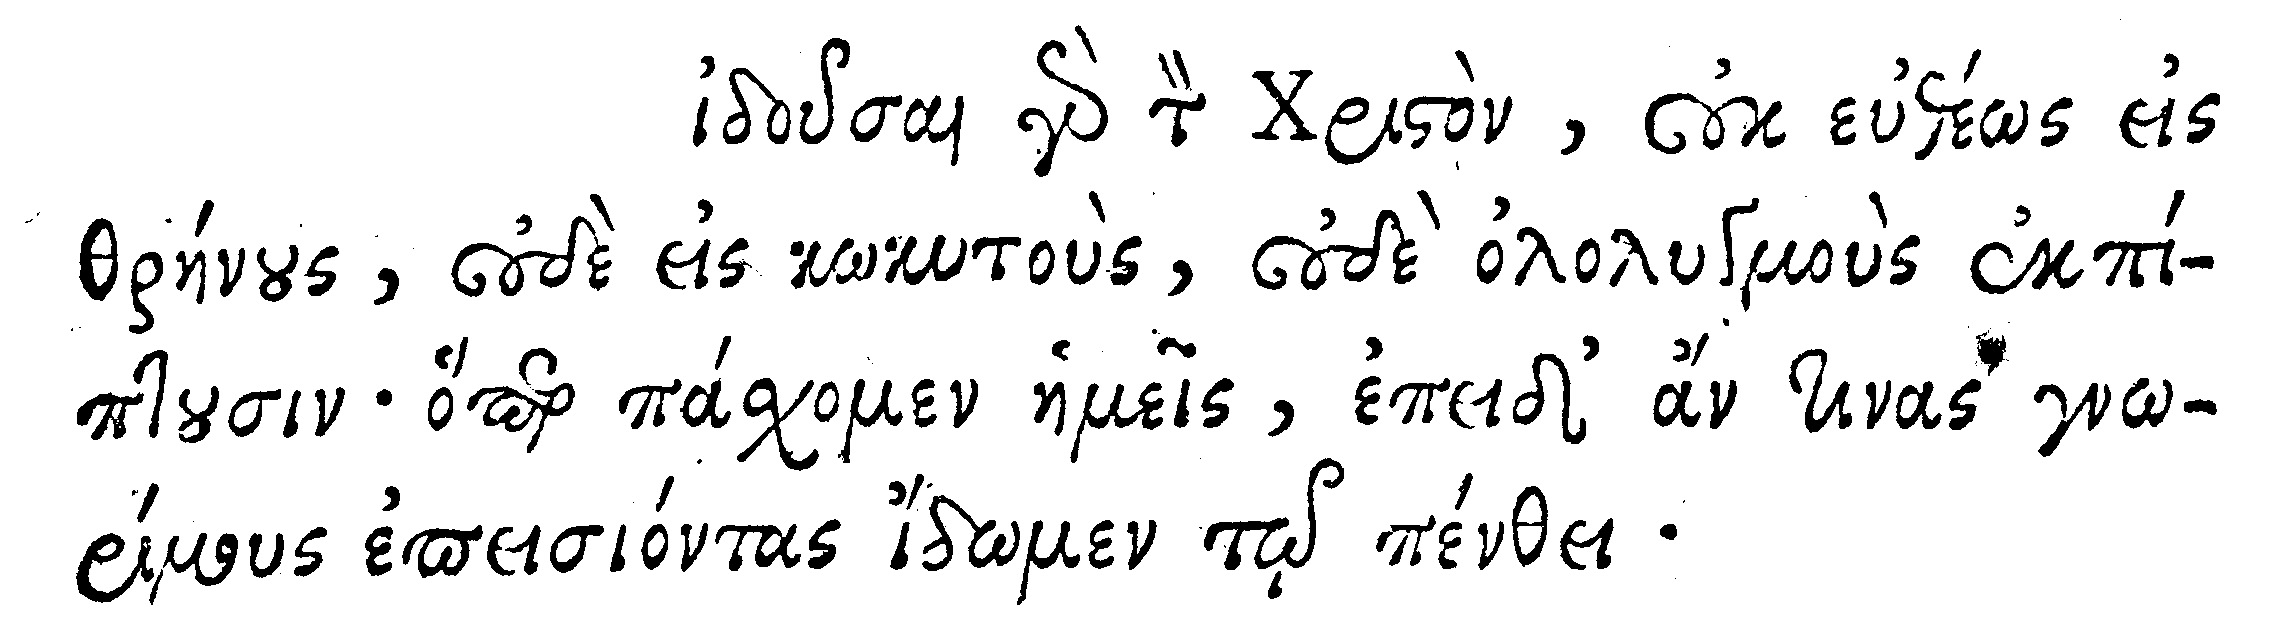 ἰδοῦσαι γὰρ τὸν Χριστὸν, οὐκ εὐθέως εἰς
θρήνους, οὐδὲ εἰς κωκυτοὺς, οὐδὲ ὀλολυγμοὺς ἐκπί-
πτουσιν· ὅπερ πάσχομεν ἡμεῖς, ἐπειδ' ἄν τινας γνω-
ρίμους ἐπεισιόντας ἴδωμεν τῷ πένθει.